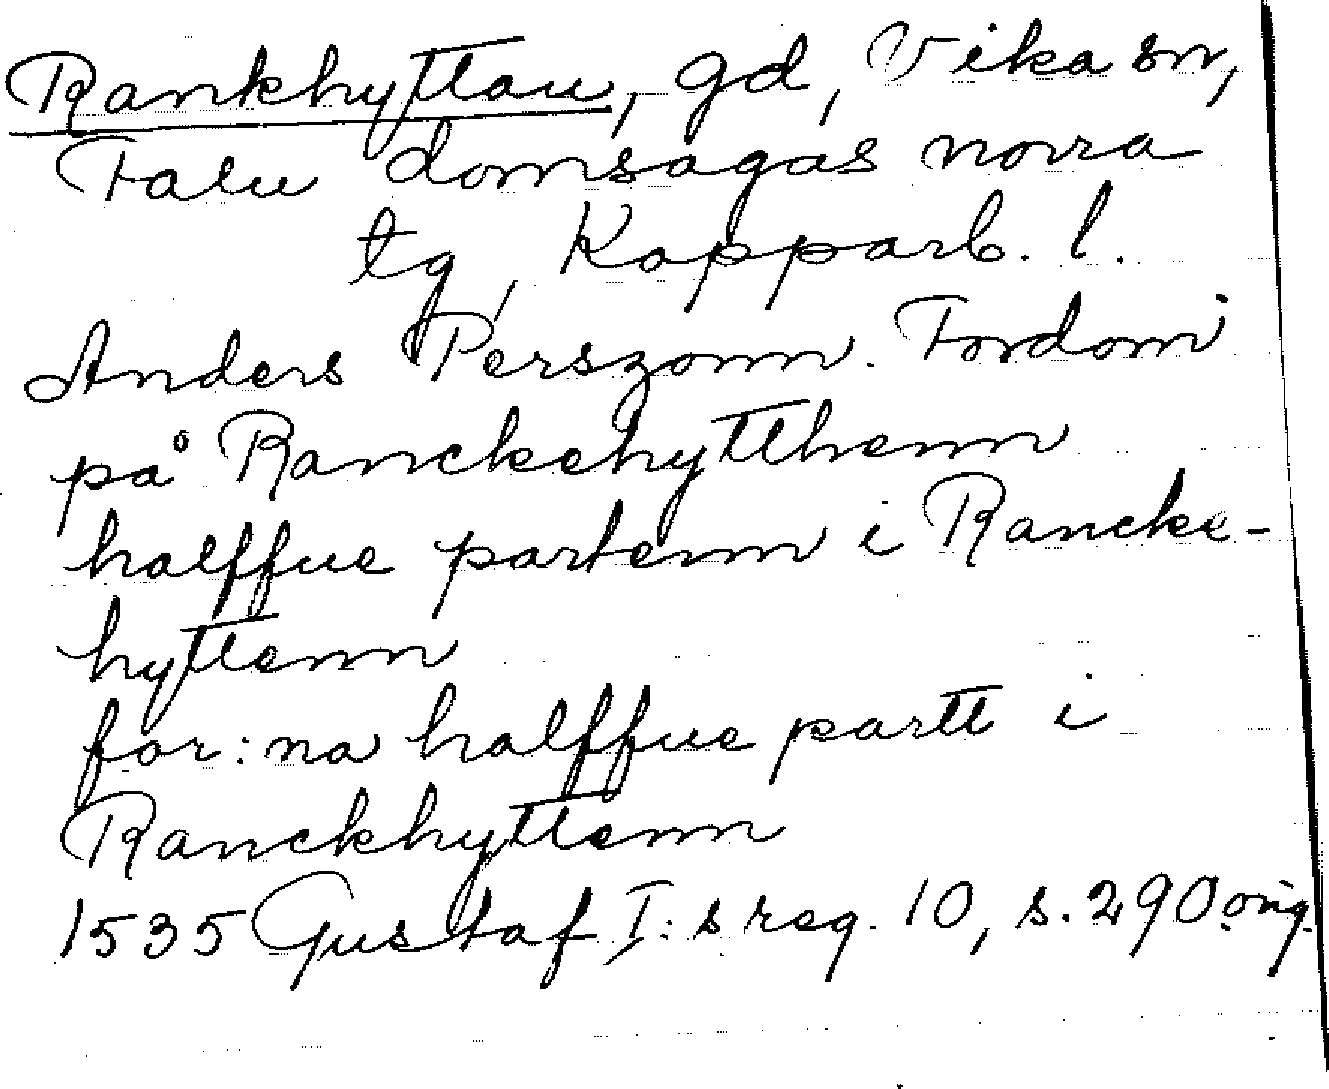 Rankhyttan, gd, Vika sn,
Falu domsagas norra
tg, Kopparb. l.
Anders Perszonn. Fordom
på Ranckehytthenn
halffue partenn i Rancke-
hyttenn
for:na halffue partt i
Ranckhyttenn
1535 Gustaf I:s reg. 10, s. 290 orig.